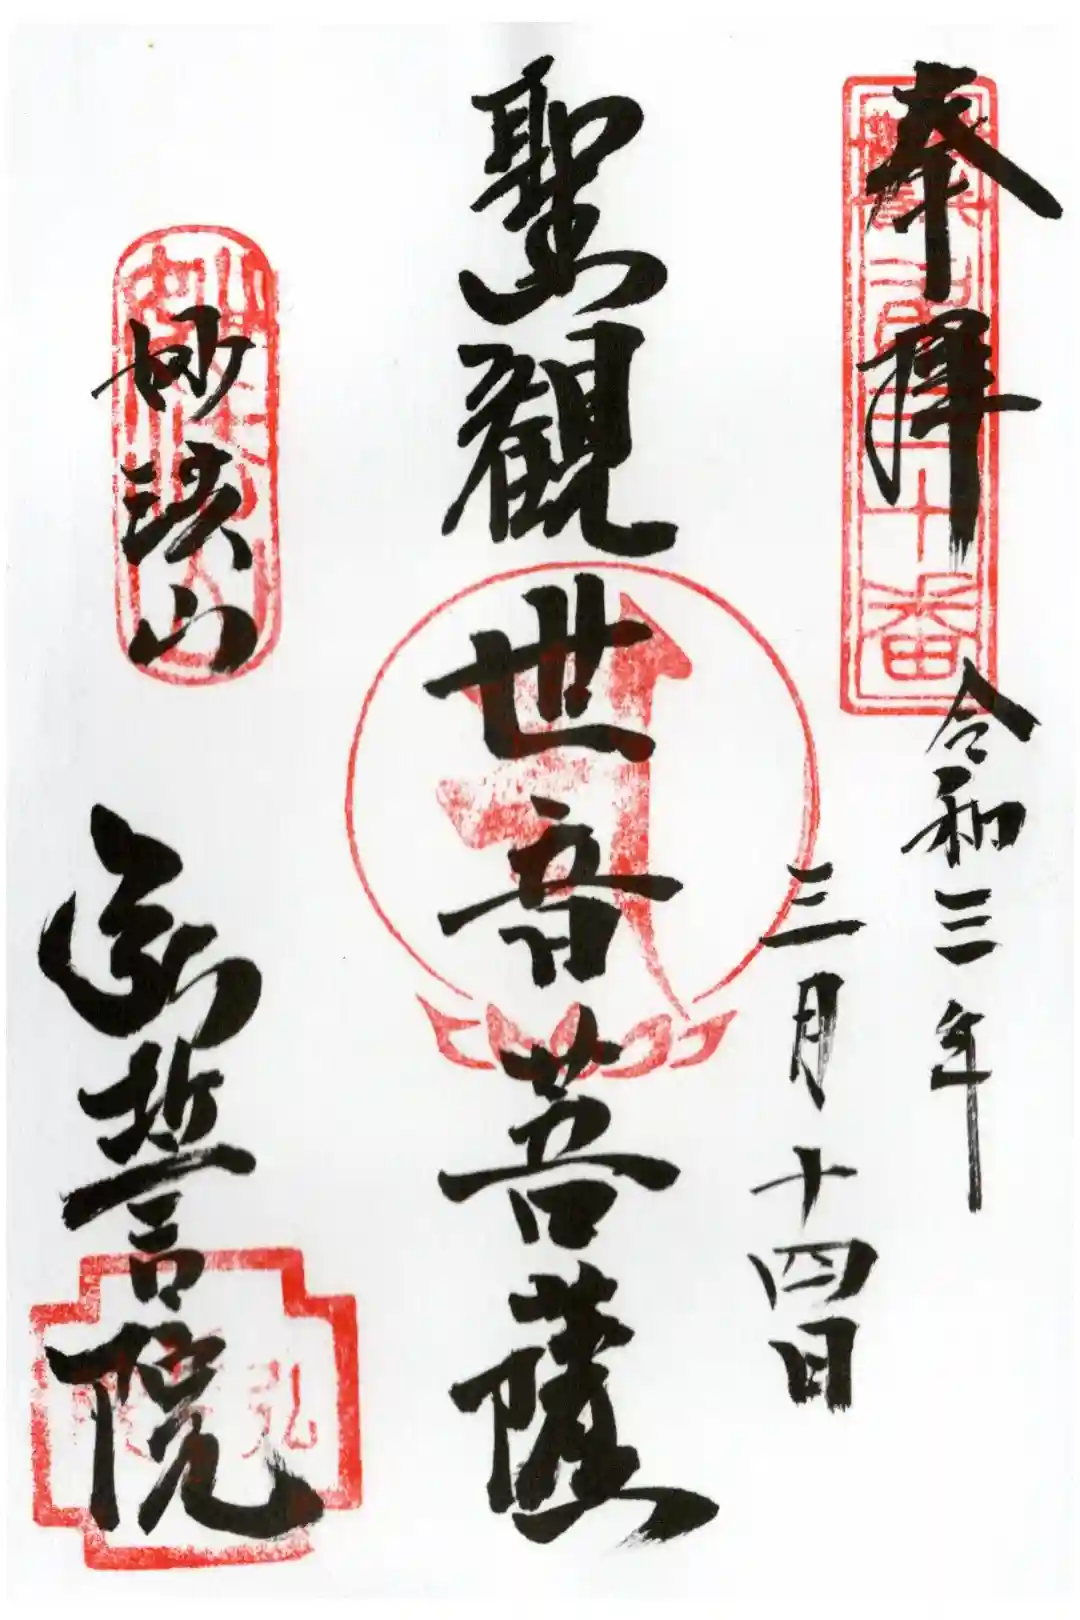 奉拝
令和三年
三月十四日
聖觀世音菩薩
妙法山
妙法山
弘誓院